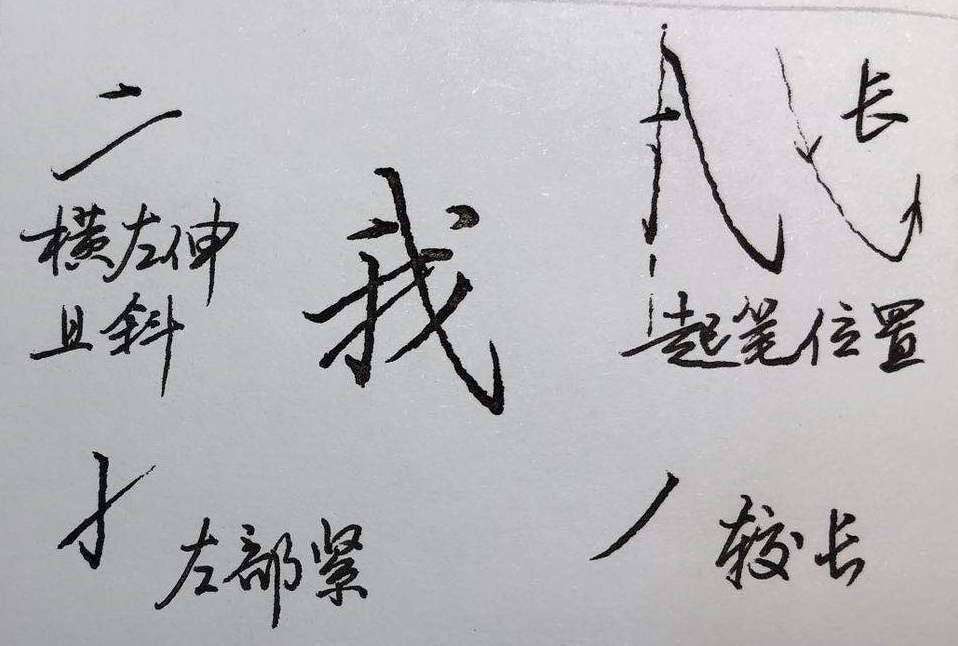 长
横左伸
且斜
我
起笔位置
左部紧
较长